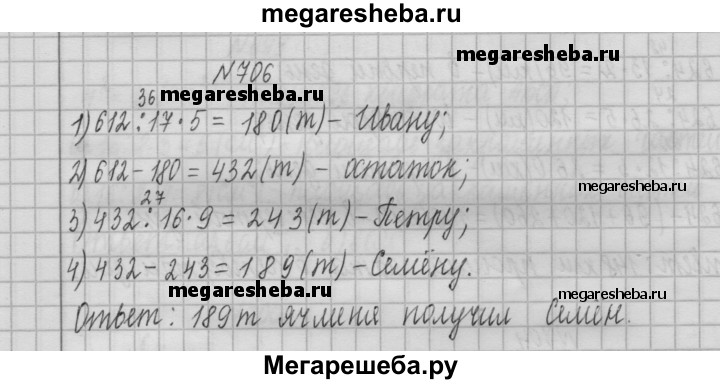 megaresheba.ru
megaresheba.ru
№706
36
megaresheba.ru
1) 612:17·5 = 180(т) - Ивану;
2) 612-180 = 432(т) - остаток;
megaresheba.ru
27
3) 432:16·9 = 243(т) - Петру;
4) 432-243 = 189(т) - Семёну.
megaresheba.ru
megaresheba.ru
Ответ: 189т ячменя получил Семён.
Мегарешеба.ру